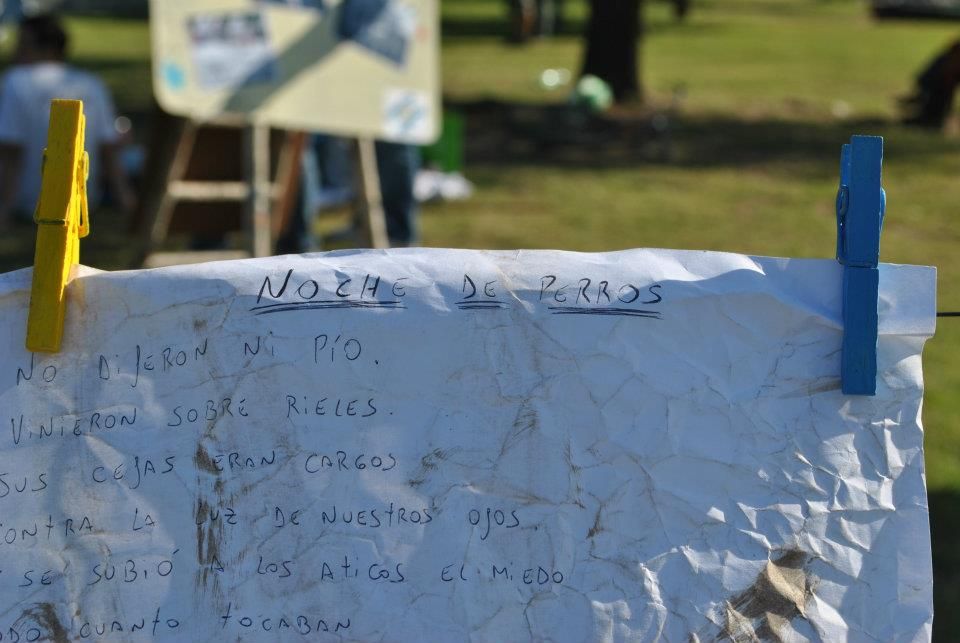 NOCHE DE PERROS
NO DIJERON NI PÍO.
VINIERON SOBRE RIELES.
SUS CEJAS ERAN CARGOS
CONTRA LA LUZ DE NUESTROS OJOS.
SE SUBIÓ A LOS ATICOS EL MIEDO
ODO CUANTO TOCABAN